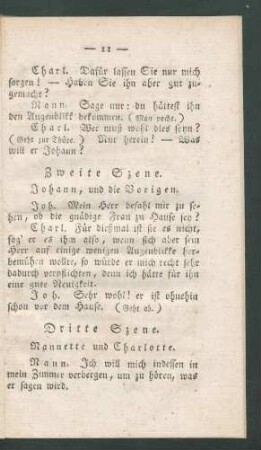 — 11 —
Charl. Dafür lassen Sie nur mich
sorgen! — Haben Sie ihn aber gut zu-
gemacht?
Nann. Sage nur: du hättest ihn
den Augenblikk bekommen. (Man pocht.)
Charl. Wer muß wohl dies seyn?
(Geht zur Thüre.) Nur herein! — Was
will er Johann?
Zweite Szene.
Johann, und die Vorigen.
Joh. Mein Herr befahl mir zu se-
hen, ob die gnädige Frau zu Hause sey?
Charl. Für dießmal ist sie es nicht,
sag' er es ihm also, wenn sich aber sein
Herr auf einige wenigen Augenblikke her-
bemühen wollte, so würde er mich recht sehr
dadurch verpflichten, denn ich hätte für ihn
eine gute Neuigkeit.
Joh. Sehr wohl! er ist ohnehin
schon vor dem Hause. (Geht ab.)
Dritte Szene.
Nannette und Charlotte.
Nann. Ich will mich indessen in
mein Zimmer verbergen, um zu hören, was
er sagen wird.